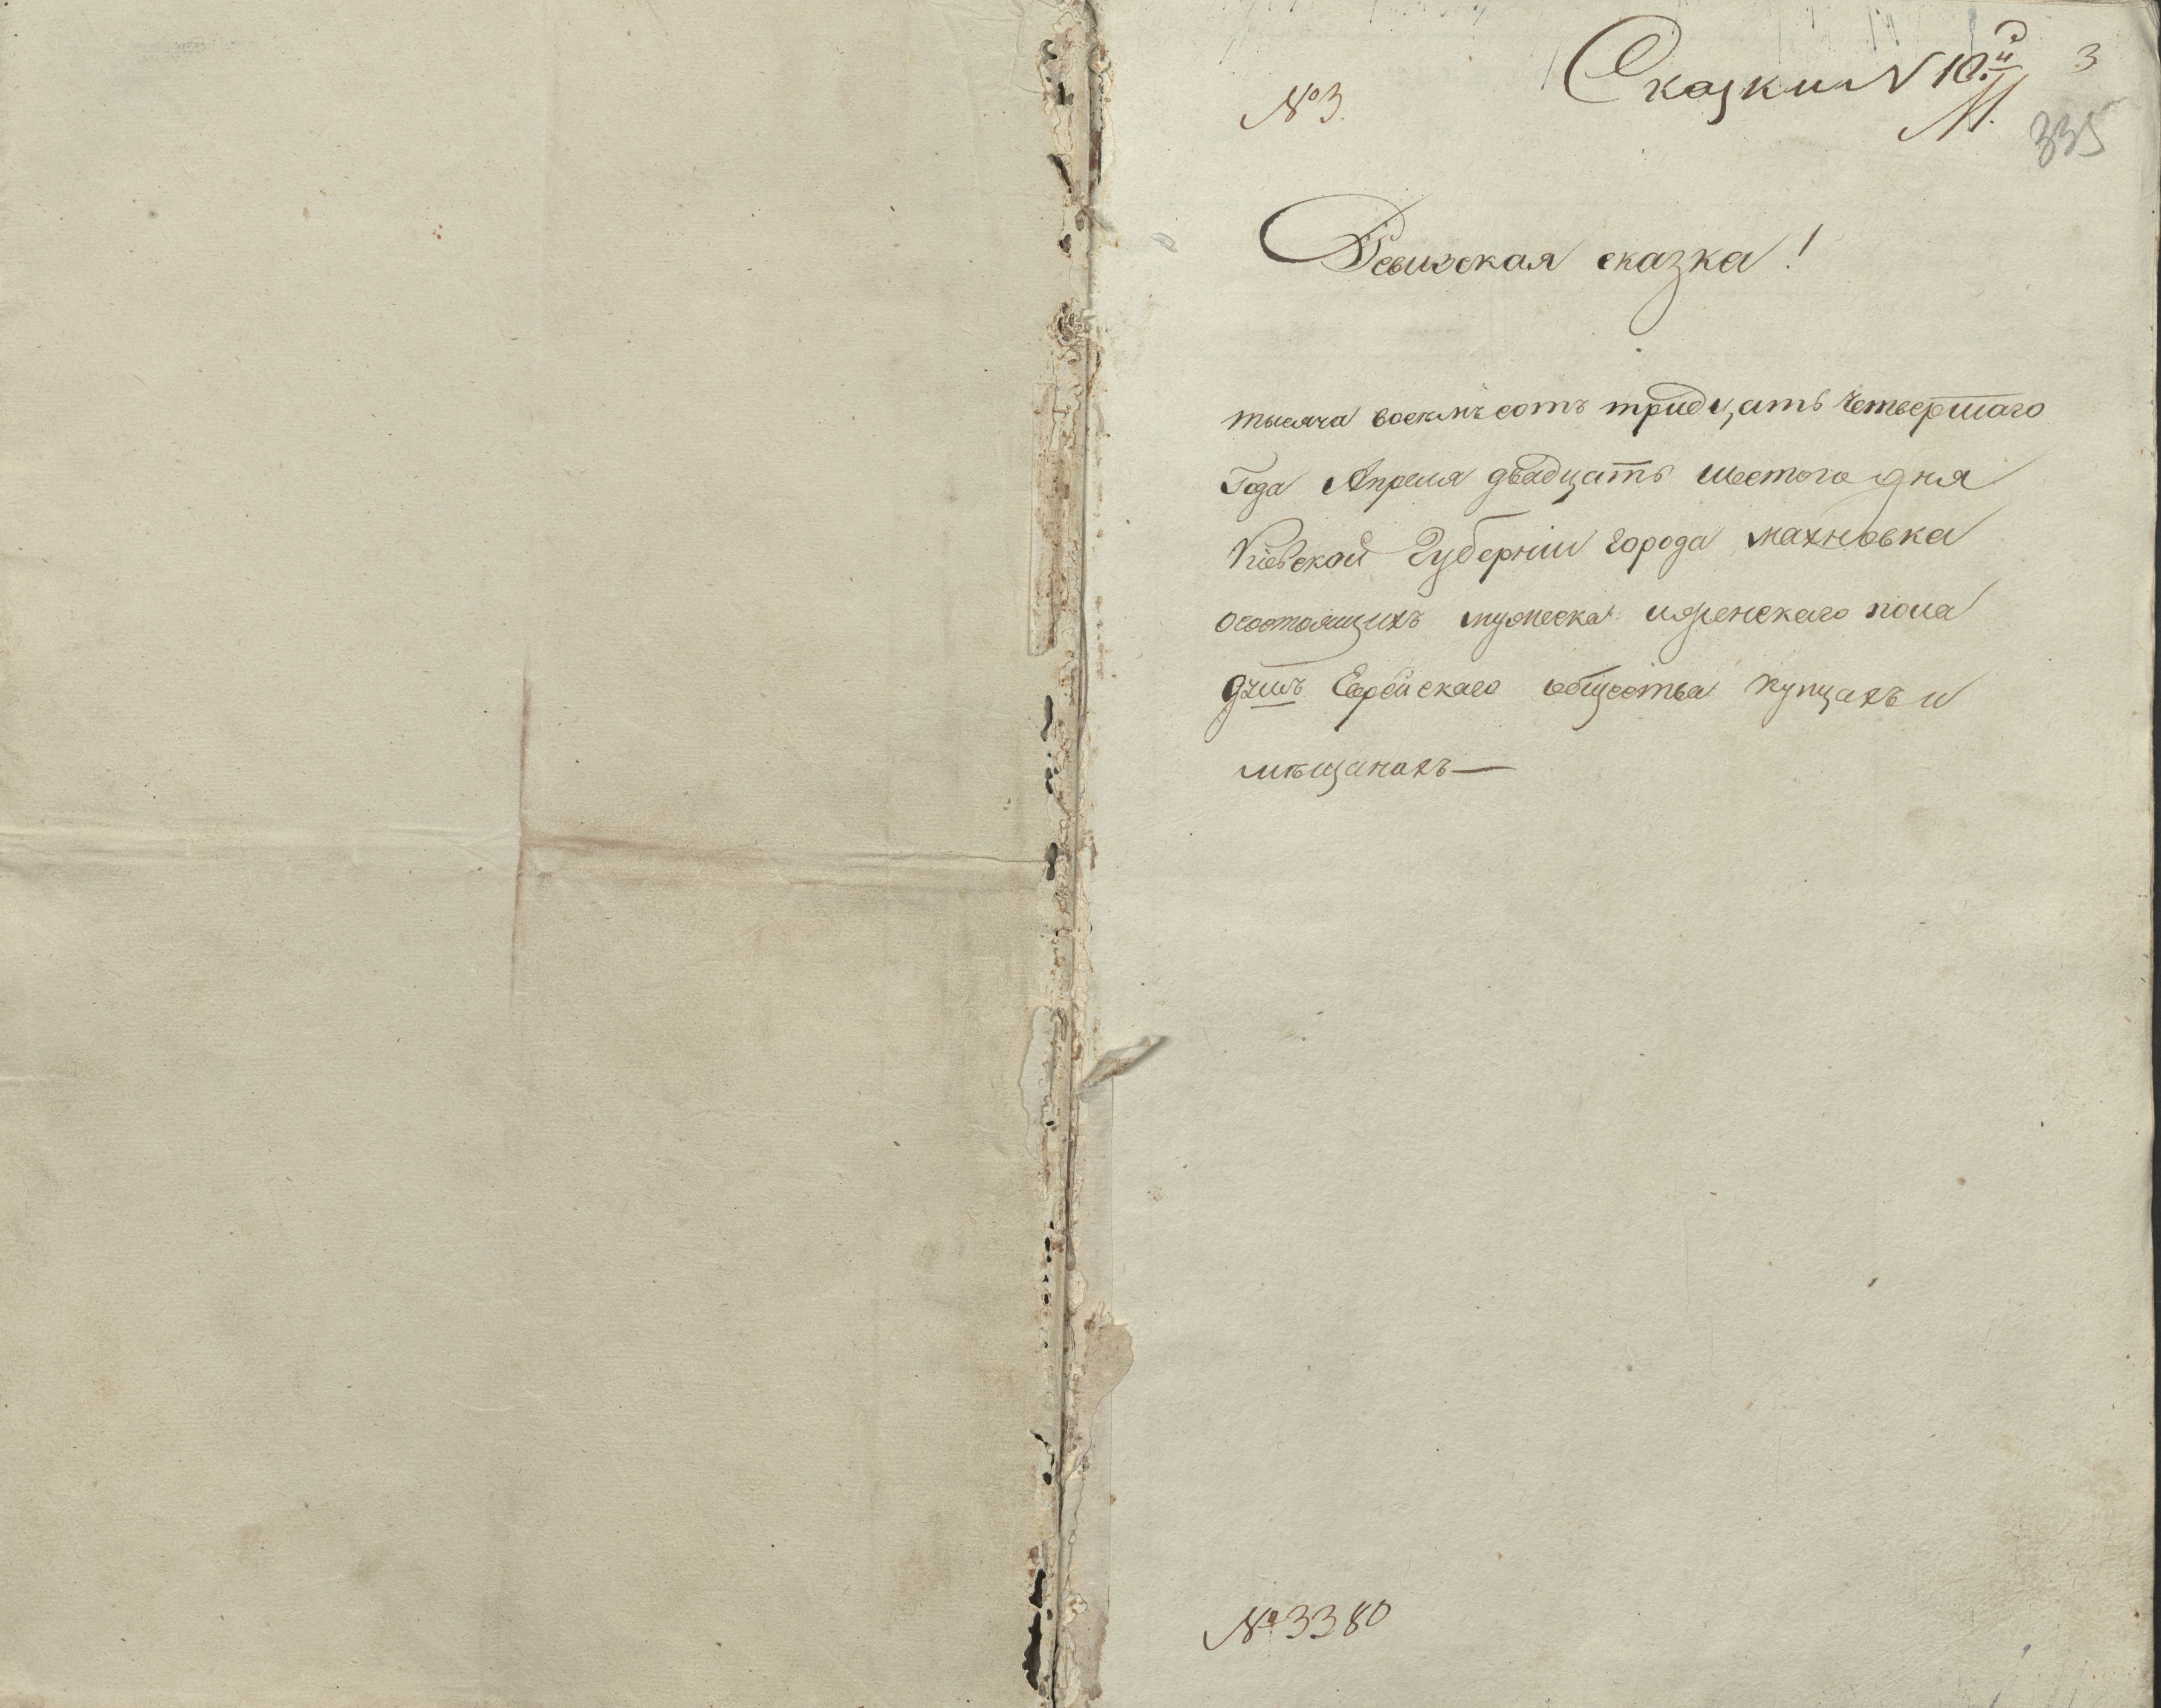 № 3.
Сказки № 10й
3
335
Ревизская сказка!
тысяча восемъ сотъ тридцать четвертаго
Года Апреля двадцать шестого дня
Кіевской Губерніи города махновка
осостоящихъ мужеска: иженскаго пола
душъ Еврейскаго общества: купцахъ и
мѣщанахъ —
№ 3380